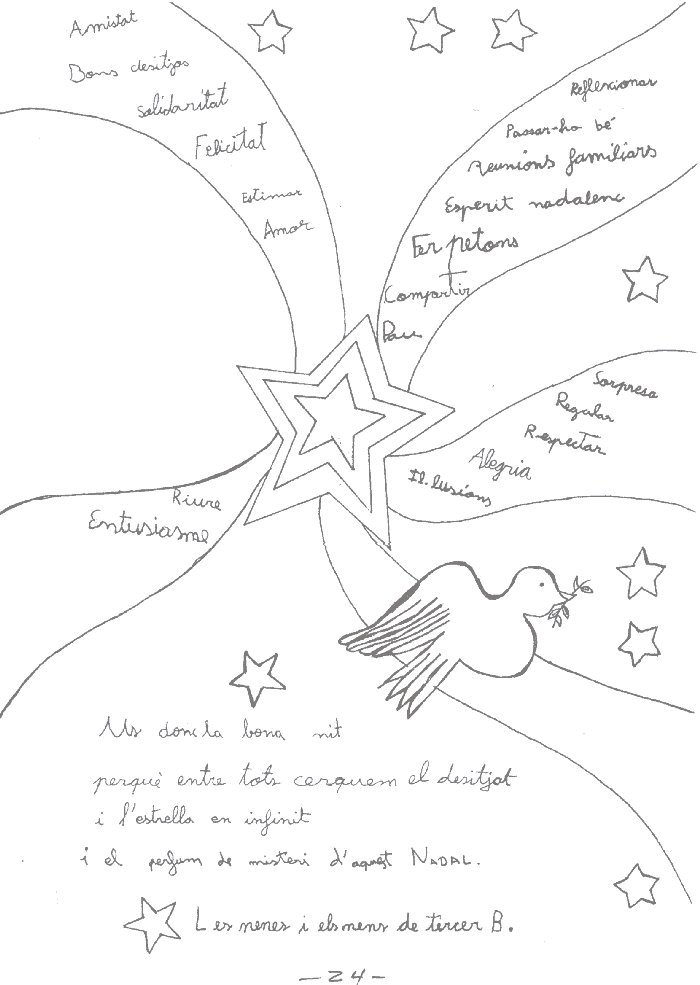 Amistat
Bons desitjos
Solidaritat
Felicitat
Estimar
Amor
Reflexionar
Passar-ho bé
Reunions familiars
Esperit nadalenc
Fer petons
Compartir
Pau
Sorpresa
Regalar
Respectar
Alegria
Il·lusions
Riure
Entusiasme
Us donc la bona nit
perquè entre tots cerquem el desitjat
i l'estrella en infinit
i el perfum de misteri d'aquest NADAL.
Les nenes i els nens de tercer B.
-24-